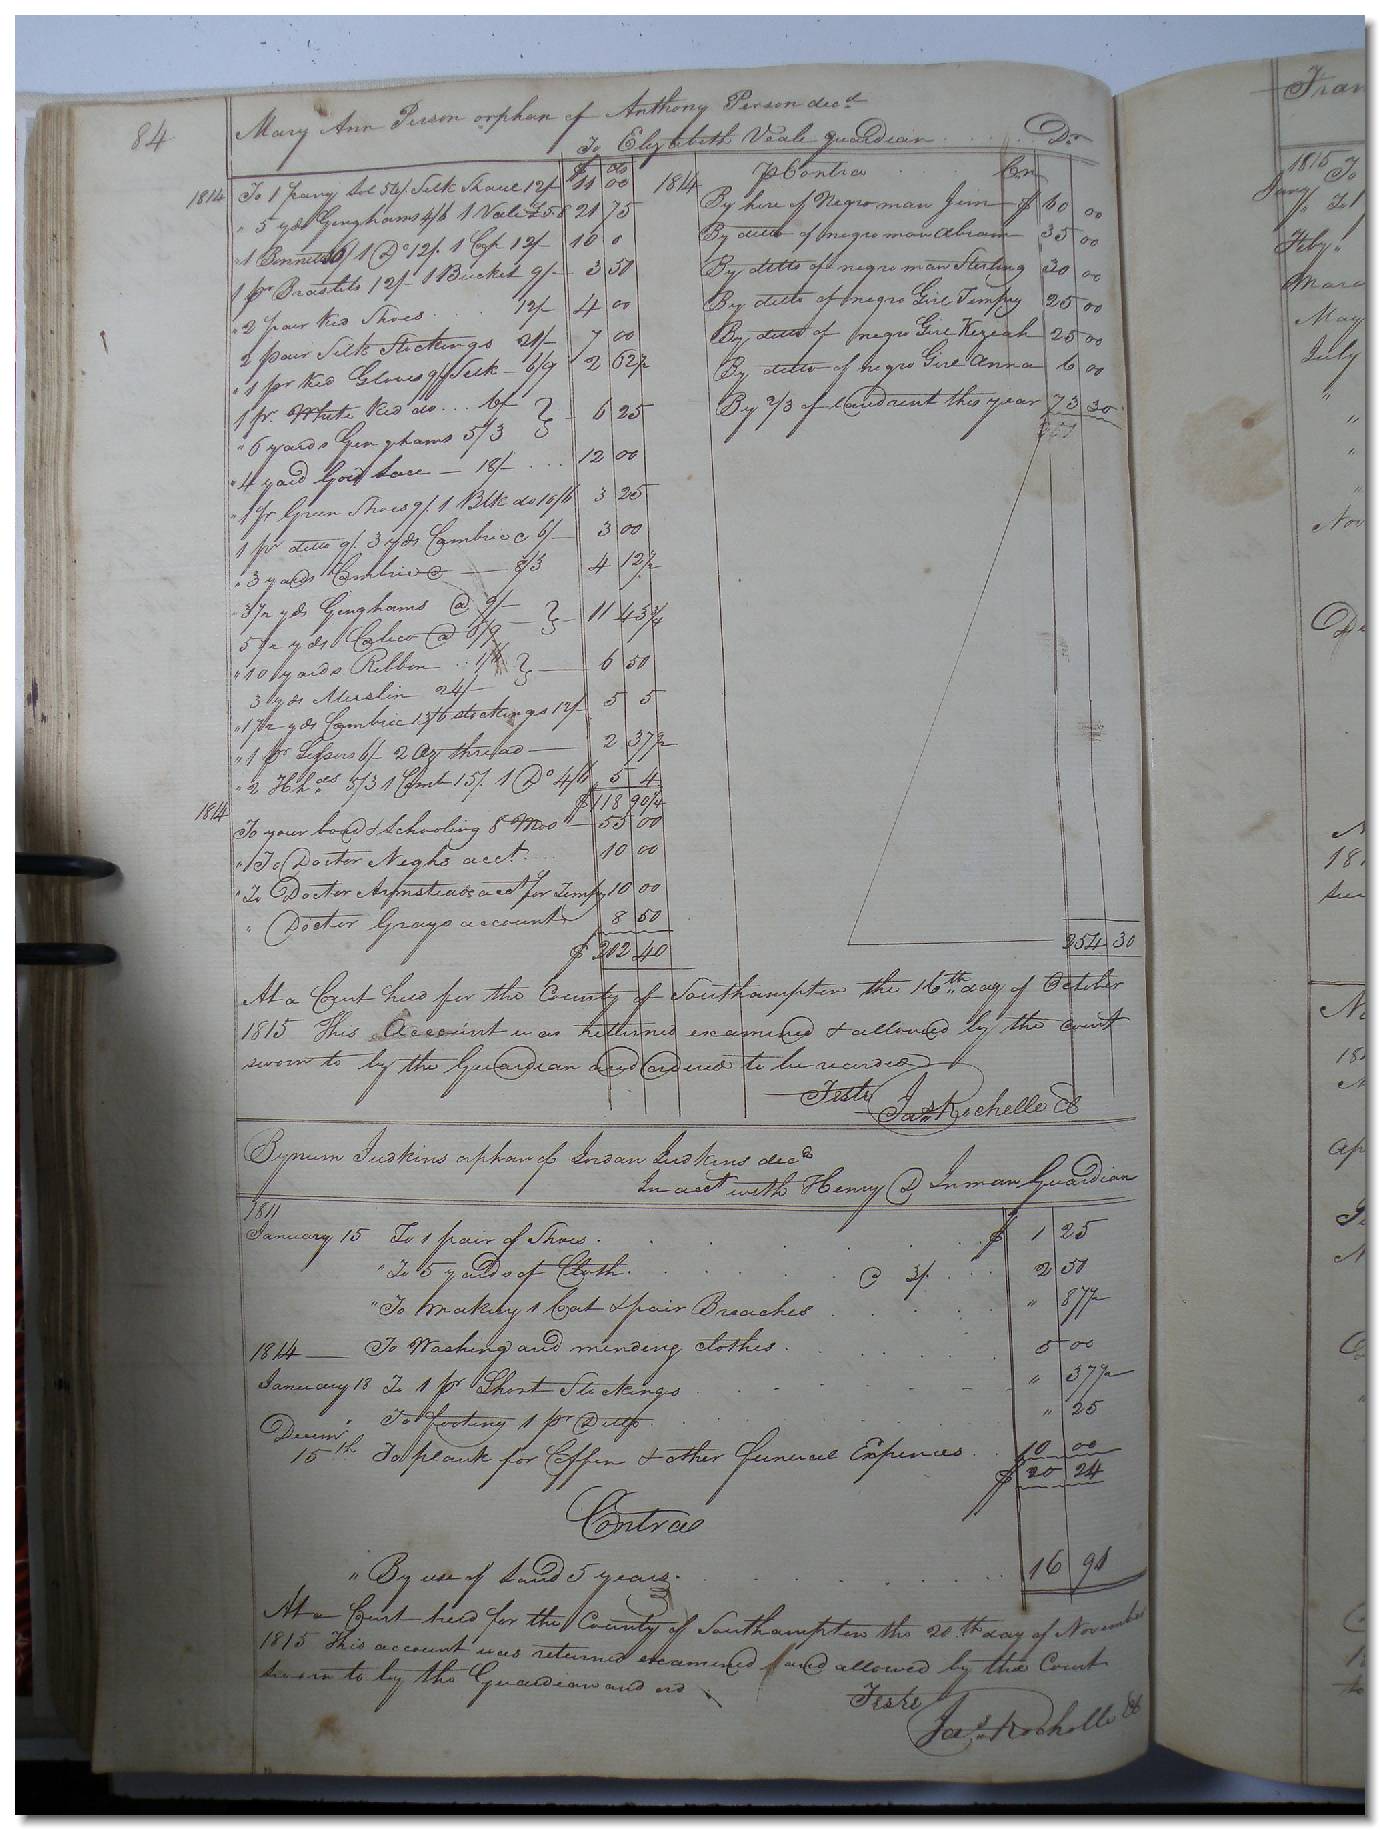 84
Mary Ann Person orphan of Anthony Person decd
To Elizabeth Veale guardian Dr
1814 To 1 pavy 54/ Silk Shaul 12/ $11 00
" 5 yds Ginghams 4/6 1 Vale 21 75
"1 Bonnet 1 Do 12/ 1 Cap 12/ 10 0
1 pr Braslets 12/ 1 Bucket 9/ 3 50
"2 pair Kid Shoes 12/ 4 00
2 pair Silk Stockings 21/ 7 00
"1 pr Kid Gloves 9/ Silk 6/9 2 62½
1 pr. White Kid do... 6/
"6 yards Ginghams 5/3 6 25
"4 yard lace 18/ 12 00
"1 pr Green Shoes 9/ 1 Blk do 10/6 3 25
1 pr ditto 9/ 3 yds Cambric @ 6/ 3 00
"3 yards Cambric @ 8/3 4 12½
"3½ yds Ginghams @ 9/
5½ yds Calico @ 11 43¾
"10 yards Ribbon
3 yds Muslin 24/ 6 50
"1½ yds Cambric 15/6 stockings 12/ 5 5
"1 pr 6/ 2 Oz thread 2 37½
"2 Hkfs 5/3 1 Comb 15/ 1 Do 4/6 5 4
$118 90¼
1814
To your board & Schooling 8 Mos 55 00
"To Doctor acct. 10 00
"To Doctor Armsteads acct for Tempy 10 00
" Doctor Grays account 8 50
$202 40
1814 pContra Cr
By hire of Negro man Jim $60 00
By ditto of negro man Abram 35 00
By ditto of negro man Sterling 30 00
By ditto of negro Girl Tempy 25 00
By ditto of negro Girl Keziah 25 00
By ditto of negro Girl Anna 6 00
By 2/3 of land rent this year 73 30
254 30
At a Court held for the County of Southampton the 16th day of October
1815 This Account was returned examined & allowed by the court
sworn to by the Guardian and ordered to be recorded
Teste
Jas Rochelle Cl
Bynum Judkins orphan of Jordan Judkins decd
In acct with Henry D Inman Guardian
1811
January 15 To 1 pair of Shoes $ 1 25
"To 5 yards of Cloth @ 3/ 2 50
"To making 1 Coat & pair Breaches " 87½
1814 To Washing and mending clothes 5 00
January 13 To 1 pr Short Stockings " 37½
" To footing 1 pr Ditto " 25
Decem
15th To plank for Coffin & other funeral Expences 10 00
$20 24
Contra
" By use of Land 5 years 16 91
At a Court held for the County of Southampton the 20th day of November
1815 This account was returned examined and allowed by the Court
sworn to by the Guardian and ord
Teste
Jas Rochelle Cl
Fran
1815 To
Jany
Feby
May
July
Nov